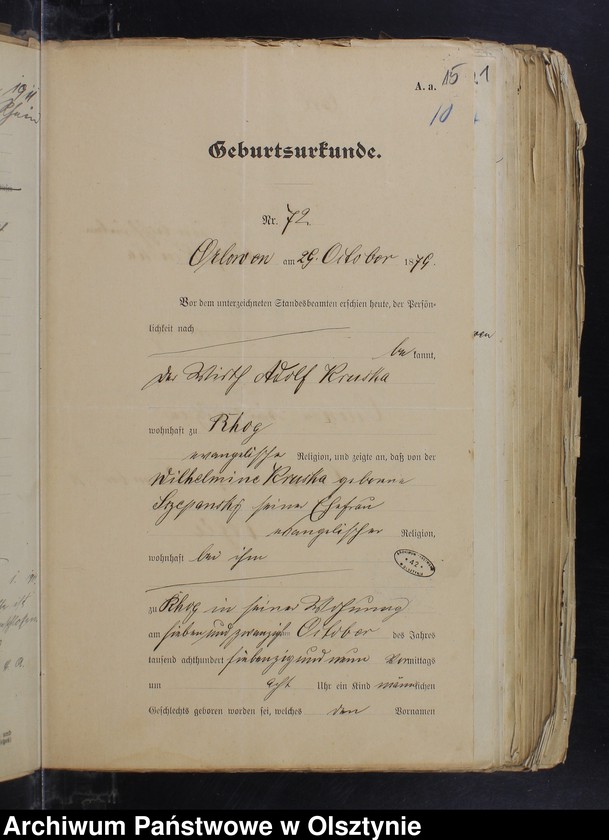 A. a. 15
10
Geburtsurkunde.
Nr. 72.
Orlowen am 29. October 1879.
Vor dem unterzeichneten Standesbeamten erschien heute, der Persön-
lichkeit nach
bekannt,
der Wirth Adolf Kruska
wohnhaft zu Khog
evangelische Religion, und zeigte an, daß von der
Wilhelmine Kruska geborene
Szepansky seiner Ehefrau
evangelischer Religion,
wohnhaft bei ihm
zu Khog in seiner Wohnung
am sieben und zwanzig October des Jahres
tausend achthundert siebenzig und neun Vormittags
um acht Uhr ein Kind männlichen
Geschlechts geboren worden sei, welches den Vornamen
Archiwum Państwowe w Olsztynie